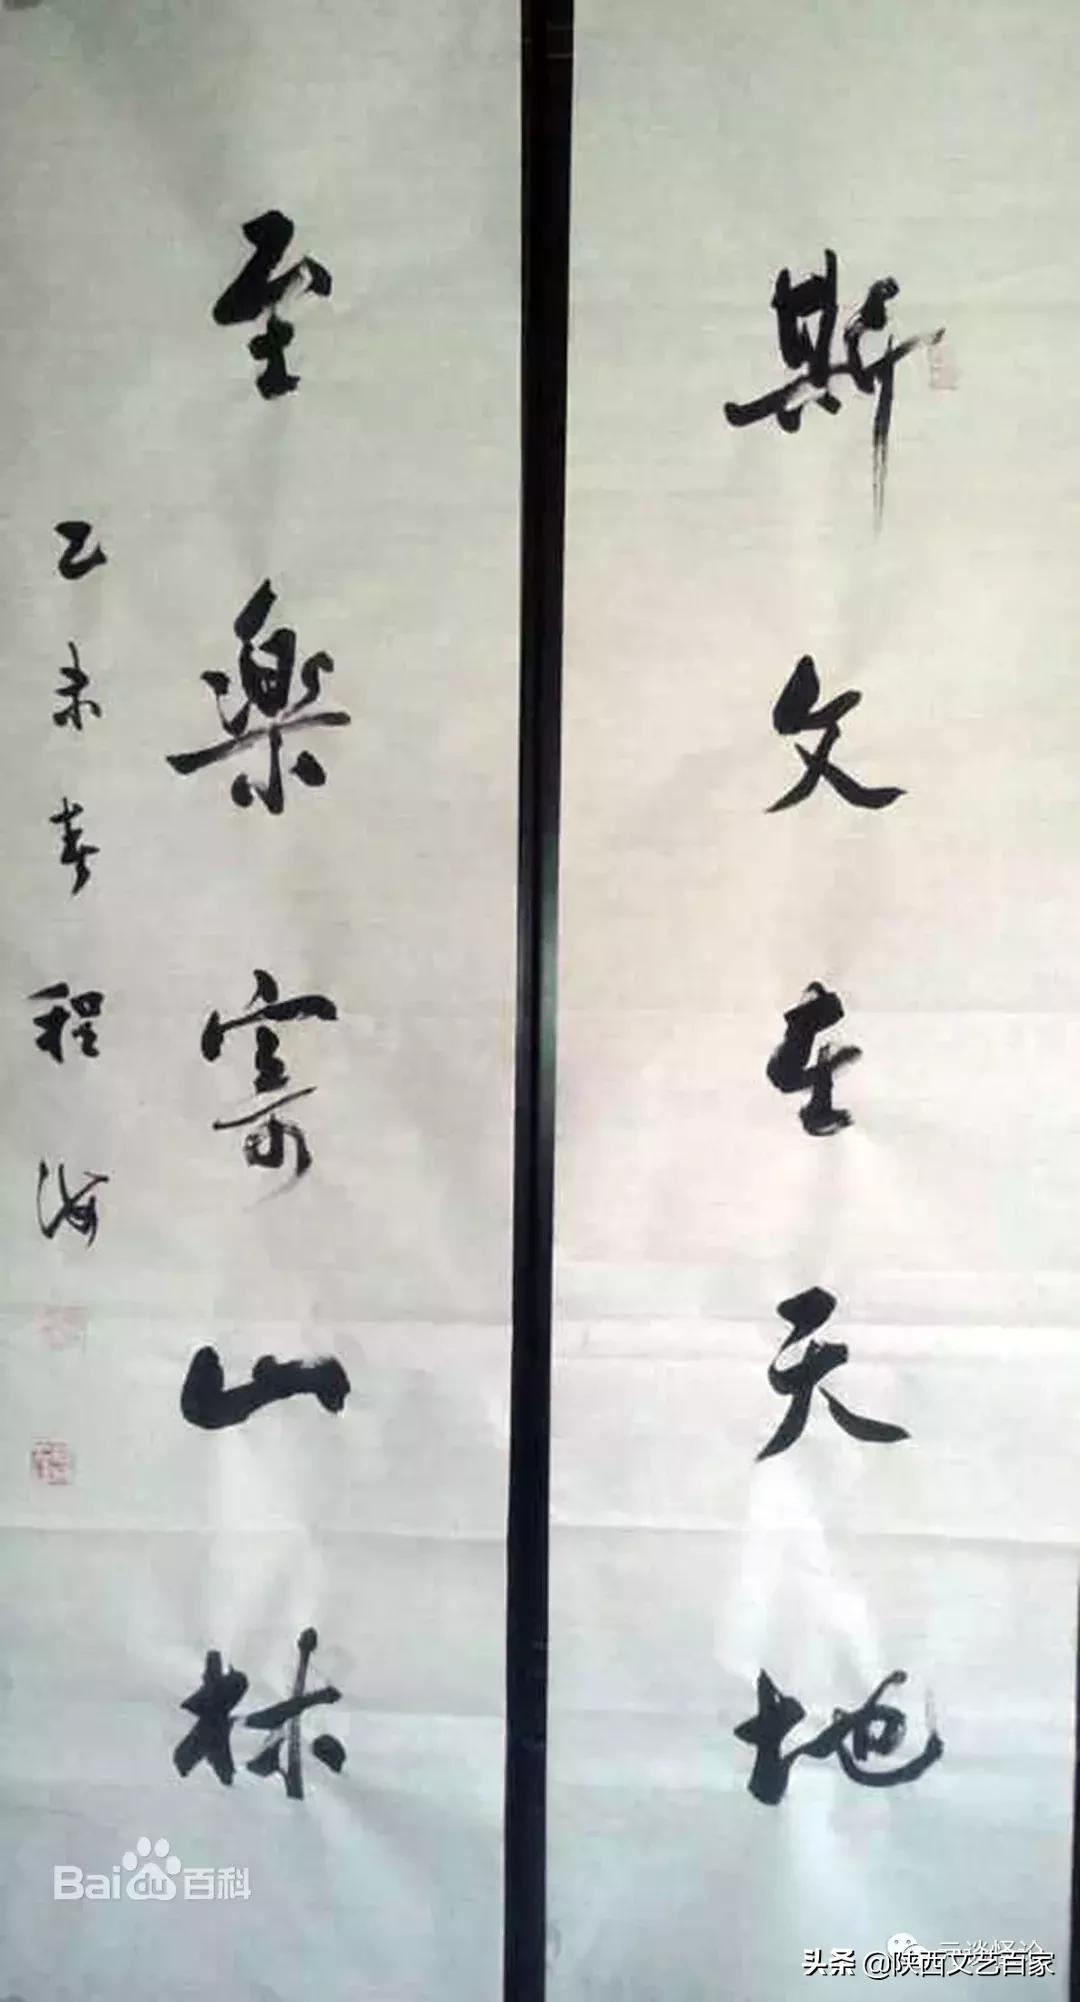 斯文在天地
至樂寄山林
乙未春 程海
Bai百科
头条 @陕西文艺百家